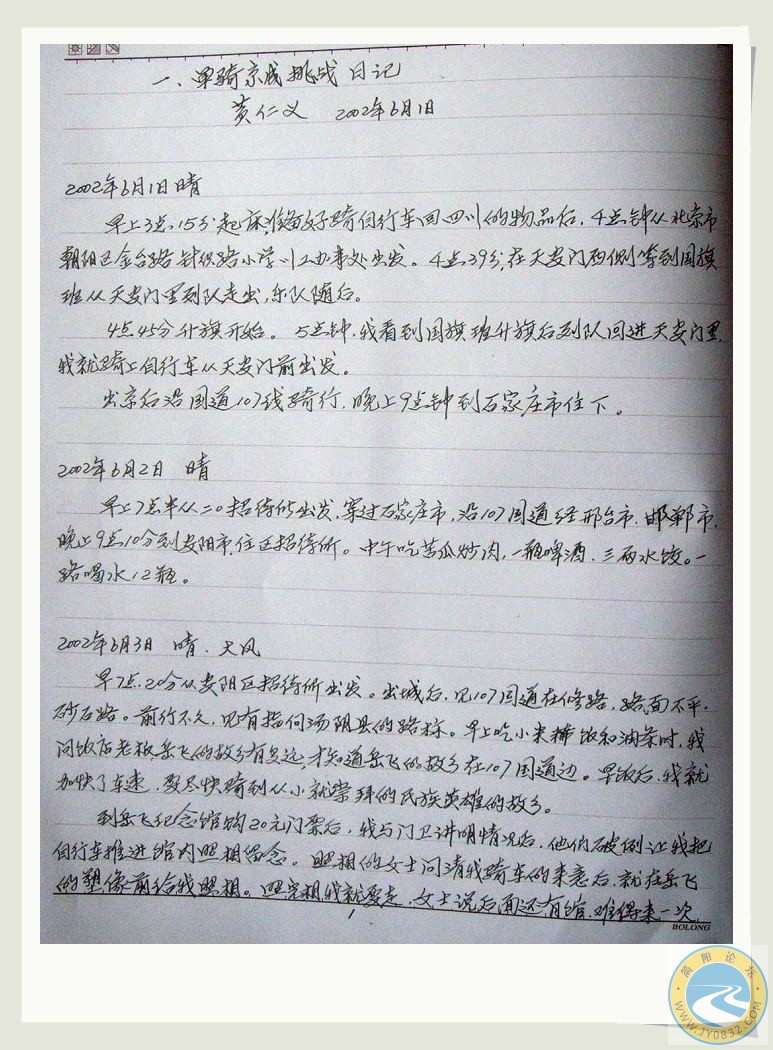 一、单骑京成挑战日记
黄仁义 2002年6月1日
2002年6月1日晴
早上3点15分起床,准备好骑自行车回四川的物品后,4点钟从北京市
朝阳区金台路针织路小学川工办事处出发。4点39分,在天安门西侧等到国旗
班从天安门里列队走出,乐队随后。
4点45分升旗开始。5点钟,我看到国旗班升旗后列队回进天安门里,
我就骑上自行车从天安门前出发。
出京后沿国道107线骑行,晚上9点钟到石家庄市住下。
2002年6月2日 晴
早上7点半从二0招待所出发,穿过石家庄市,沿107国道经邢台市、邯郸市,
晚上9点10分到安阳市,住区招待所。中午吃苦瓜炒肉,一瓶啤酒,三两水饺。一
路喝水12瓶。
2002年6月3日 晴、大风
早7点20分从安阳区招待所出发。出城后,见107国道在修路,路面不平,
砂石路。前行不久,见有指向汤阴县的路标。早上吃小米稀饭和油条时,我
问饭店老板,岳飞的故乡有多远,才知道岳飞的故乡在107国道边。早饭后,我就
加快了车速,要尽快骑到从小就崇拜的民族英雄的故乡。
到岳飞纪念馆购20元门票后,我与门卫讲明情况后,他们破例让我把
自行车推进馆内照相留念。照相的女士问清我骑车的来意后,就在岳飞
的塑像前给我照相。照完相我就要走,女士说后面还有馆,难得来一次,
1
BOLONG
简阳论坛
WWW.JY0832.COM